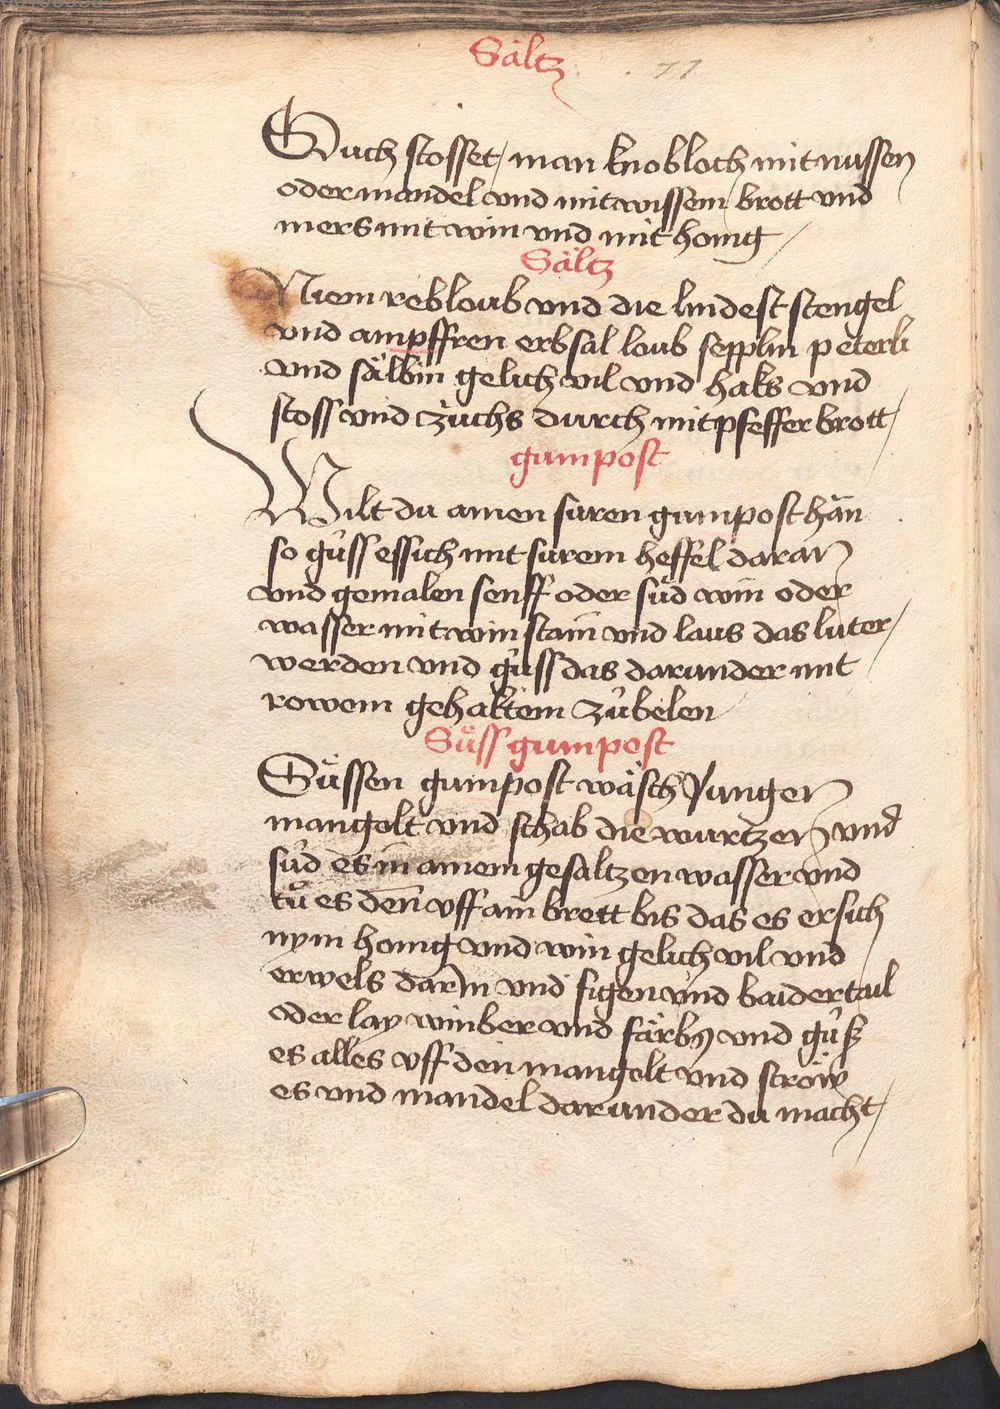 Sältz 77
Ouch stosset / man knobloch mit nussen
oder mandel vnd mit wissem brott vnd
mers mit win vnd mit honig /
Sältz
Niem rebloub vnd die lindest stengel
vnd ampffren erbsal loub sepplin peterli
vnd sälbin gelich vil vnd haks vnd
stoss vnd zuchs durch mit pfeffer brott /
gumpost
Wilt du ainen suren gumpost hän
so güss essich mit surem heffel daran
vnd gemalen senff oder süd win oder
wasser mit win stain vnd laus das luter /
werden vnd güss das darunder mit
rowem gehaktem zübelen
Süss gumpost
Süssen gumpost wäsch Junger
mangolt vnd schab die wurtzen vnd
süd es in ainem gesaltzen wasser vnd
tü es den vff ain brett bis das es ersich
nym honig vnd win gelich vil vnd
erwels darin vnd figen vnd baider tail
oder lay winber vnd färbs vnd güss
es alles vff den mangolt vnd ströw
es vnd mandel darunder du macht /